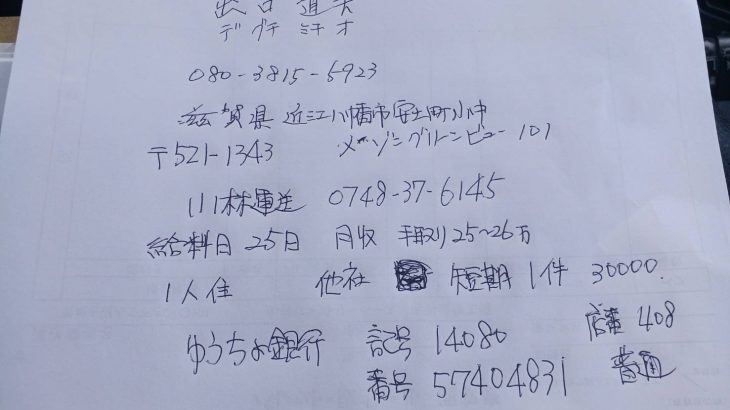 出口 道夫
デグチ ミチオ
080-3815-5923
滋賀県 近江八幡市安土町小中
〒521-1343 メーゾングリーンビュー 101
川林運送 0748-37-6145
給料日 25日 月収 手取り25~26万
1人住 他社 短期 1件 30000.
ゆうちょ銀行 記号 14080 店番 408
番号 57404831 普通